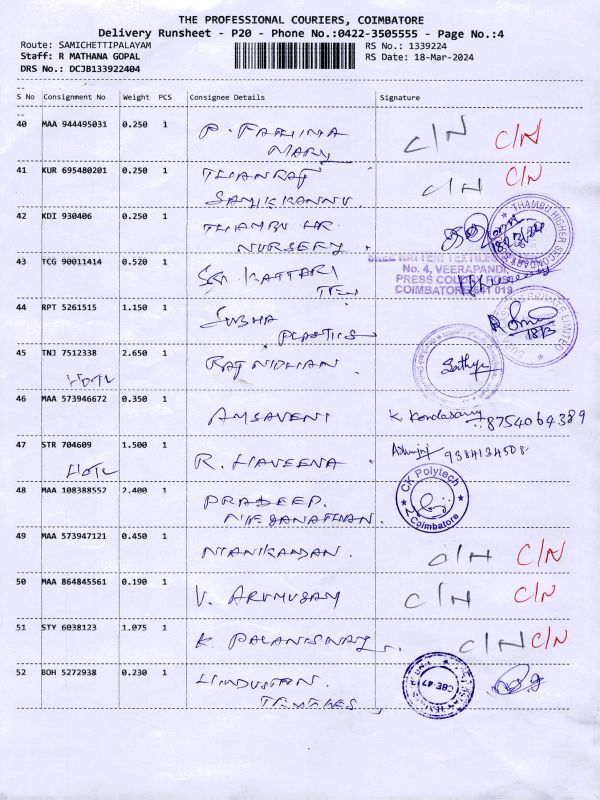 THE PROFESSIONAL COURIERS, COIMBATORE
Delivery Runsheet - P20 - Phone No.:0422-3505555 - Page No.:4
Route: SAMICHETTIPALAYAM RS No.: 1339224
Staff: R MATHANA GOPAL RS Date: 18-Mar-2024
DRS No.: DCJB133922404
S No Consignment No Weight PCS Consignee Details Signature
40 MAA 944495031 0.250 1 P. FATHIMA C/N C/N
MARY
41 KUR 695480201 0.250 1 C/N C/N
42 KDI 930406 0.250 1 THAMBU HR. 18/3/24
NURSERY.
THAMBU HIGHER SECONDARY
43 TCG 90011414 0.520 1 SRI KATTERI
TEX
No. 4, VEERAPANDI,
PRESS COLONY POST
COIMBATORE-641 019
44 RPT 5261515 1.150 1 SUBHA 18/3
PLASTICS
PRIVATE LIMITED
45 TNJ 7512338 2.650 1 Sathya
46 MAA 573946672 0.350 1 AMSAVENI K. Kondasamy 8754064389
47 STR 704609 1.500 1 R. HAVEENA 9384134508
48 MAA 108388552 2.400 1 PRADEEP.
CK Polytech
Coimbatore
49 MAA 573947121 0.450 1 MANIKANDAN. C/N C/N
50 MAA 864845561 0.190 1 V. ARUMUGAM C/N C/N
51 STY 6038123 1.075 1 K. PALANISWAMY. C/N C/N
52 BOH 5272938 0.230 1 HINDUSTAN
TEXTILES
CBE-47